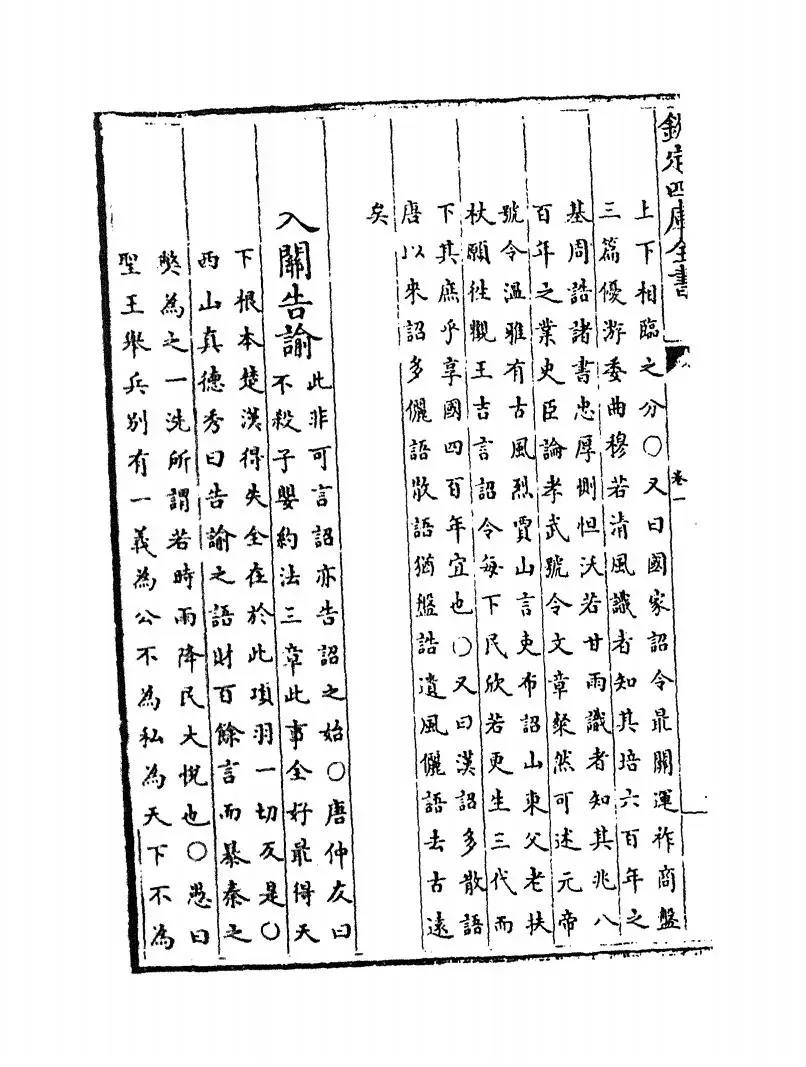 欽定四庫全書
卷一
上下相臨之分○又曰國家詔令最關運祚商盤
三篇優游委曲穆若清風識者知其培六百年之
基周誥諸書忠厚惻怛沃若甘雨識者知其兆八
百年之業史臣論孝武號令文章粲然可述元帝
號令温雅有古風烈賈山言吏布詔山東父老扶
杖願徃觀王吉言詔令每下民欣若更生三代而
下其庶乎享國四百年宜也○又曰漢詔多散語
唐以來詔多儷語散語猶盤誥遺風儷語去古遠
矣
入關告諭此非可言詔亦告詔之始○唐仲友曰
不殺子嬰約法三章此事全好最得天
下根本楚漢得失全在於此項羽一切反是○
西山真德秀曰告諭之語財百餘言而暴秦之
獘為之一洗所謂若時雨降民大悅也○愚曰
聖王舉兵別有一義為公不為私為天下不為